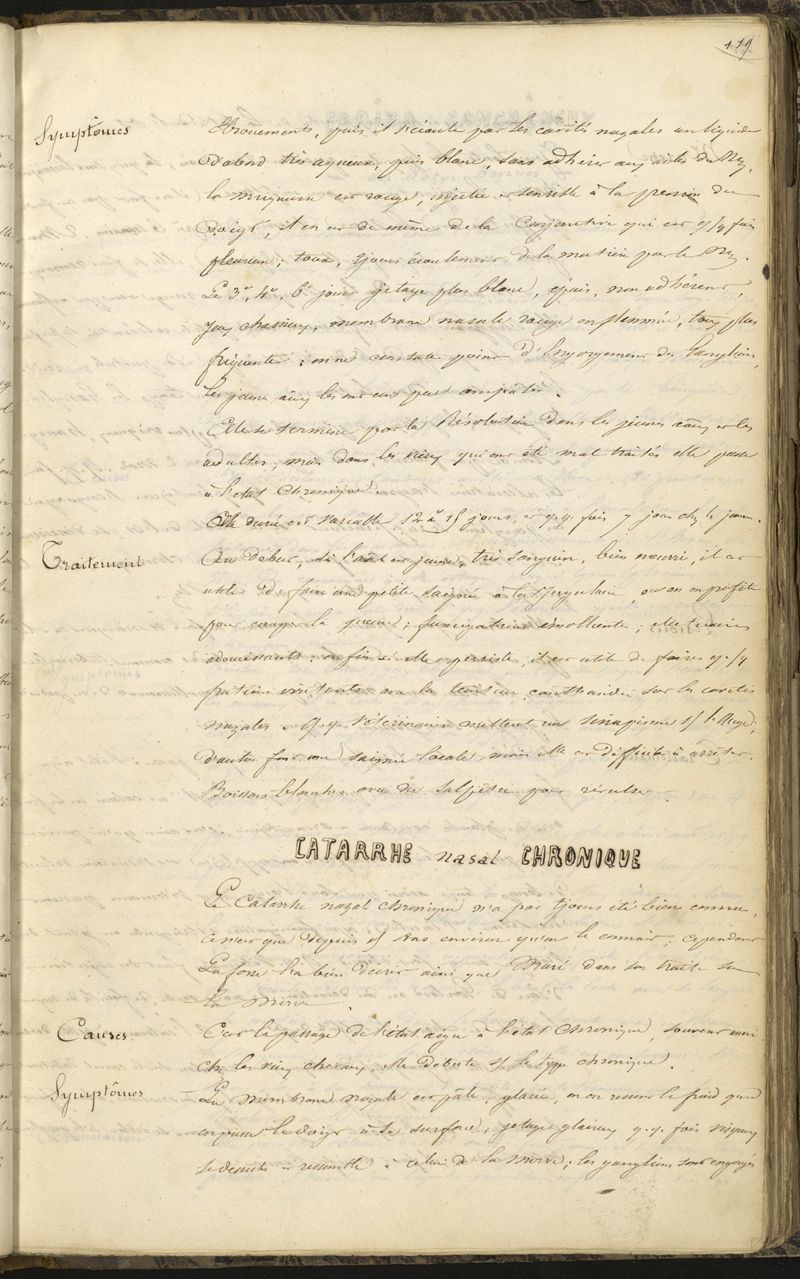 119
Symptômes
Ebrouements, puis il s'écoule par les cavités nazales un liquide
D'abord très aqueux, puis blanc, sans adhérer aux ailes du Nez,
la muqueuse est rouge, injectée et sensible à la pression du
Doigt, il en est de même de la Conjonctive qui est q/q fois
; toux, tjours écoulement de la matière par le Nez.
Le 3e, 4e, 6e jours jetage plus blanc, épais, non adhérent,
yeux chassieux, membrane nasale rouge enflammée, toux plus
fréquente ; on ne constate point d'Engorgement des Ganglions,
les jeunes anx les ont un peu empâtés.
Elle se termine par la Résolution Dans les jeunes anx et les
adultes, mais dans les vieux qui ont été mal traités elle passe
à l'état Chronique.
Sa durée est Variable 12 à 15 jours, et q.q. fois 7 jours chez le jeune.
Traitement
Au Début, si l'anal est jeune, très sanguin, bien nourri, il est
utile De faire une petite saignée à la Jugulaire, ou on en profite
pour couper la queue ; fumigations émolliente ;
adoucissants ; en fin si elle persiste, il est utile de faire q./q
frictions irritantes avec la teinture cantharide sur les cavités
nazales. Q.q. Vétérinaires mettent un Sinapisme s/ ,
d'autres font une saignée locale, mais elle est difficile à arrêter.
Boissons blanches avec du Salpêtre pour
CATARRHE nasal CHRONIQUE
Le Catarrhe nazal chronique n'a pas tjours été bien connu,
ce n'est que depuis Ans environ qu'on le connait ; cependant
Lafosse l'a bien décrit ainsi que Dans son traité sur
la Morve.
Causes
C'est le passage de l'état aigu à l'état Chronique, souvent aussi
Chez les vieux chevaux, elle Débute s/ le type chronique.
Symptômes
– La membrane nazale est pâle, glacée, on en ressent le froid quand
on passe le doigt à sa surface, jetage glaireux q.q. fois visqueux
se dessèche et ressemble à celui de la Morve ; les ganglions sont engorgés